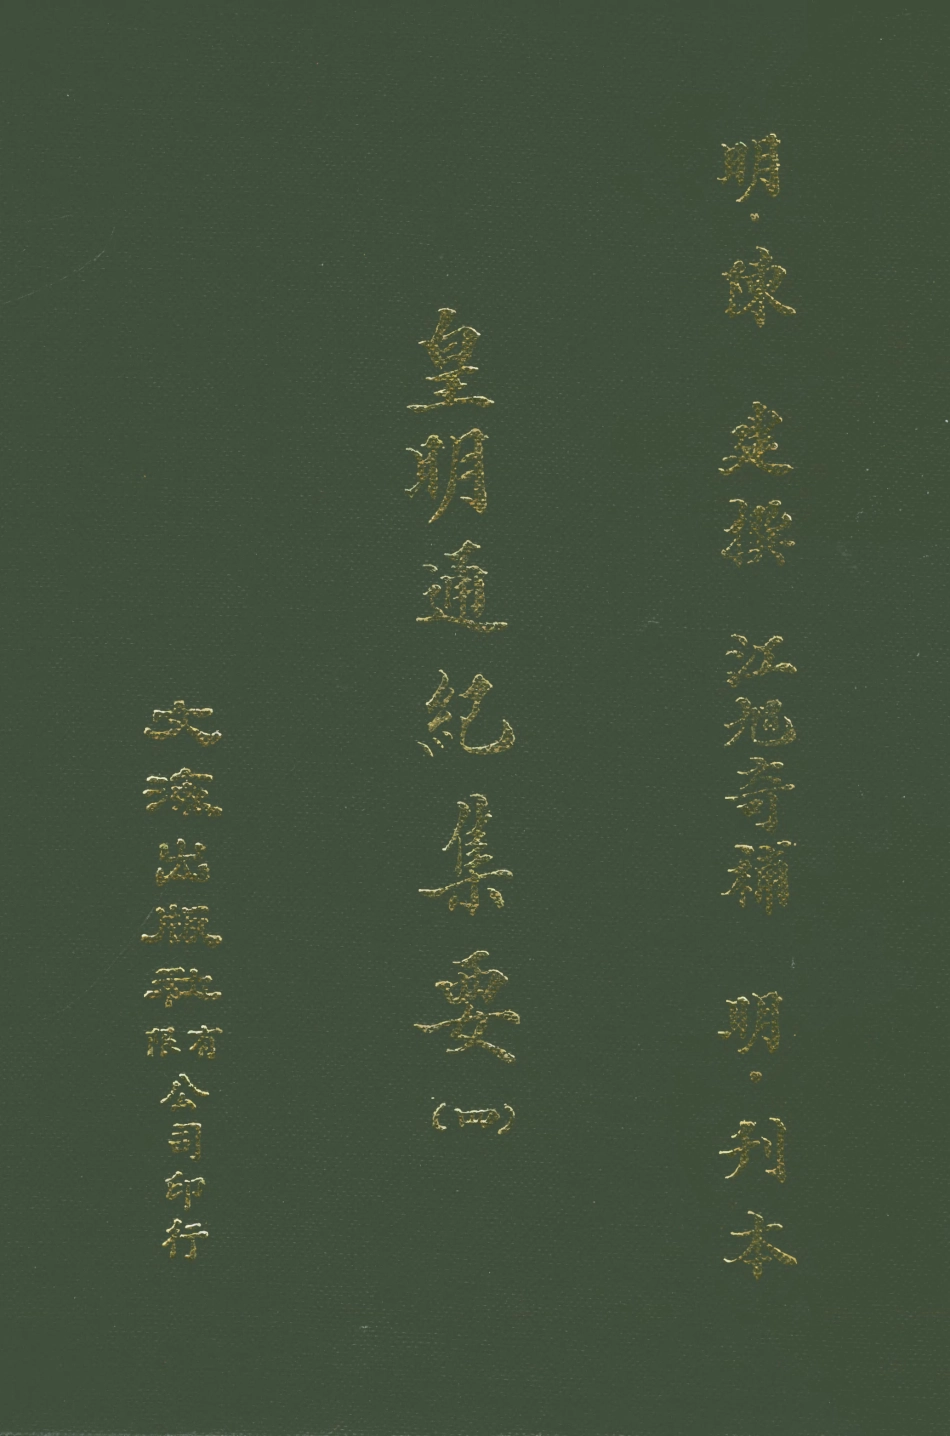 明·陳 建撰 江旭奇補 明·刋本
皇明通紀集要(四)
文海出版社有限公司印行